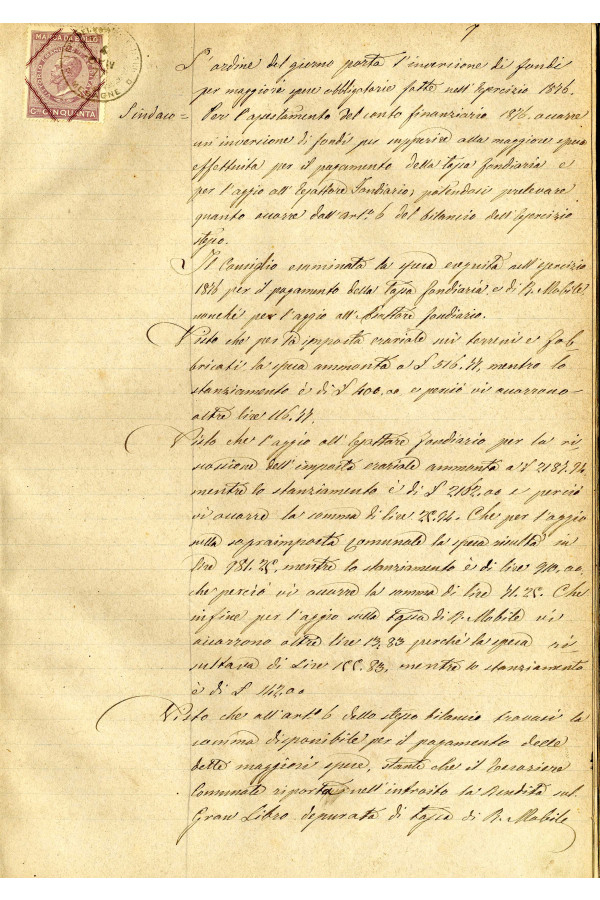 7
MARCA DA BOLLO
CMI CINQUANTA
L'ordine del giorno porta l'inversione di fondi
per maggiori spese obbligatorie fatte nell'Esercizio 1876.
Sindaco = Per l'assestamento del conto finanziario 1876 occorre
un'inversione di fondi per supperire alla maggiore spesa
effettuita per il pagamento della tassa fondiaria e
per l'aggio all'Esattore Fondiario, potendosi prelevare
quanto occorre dall'art.o 6 del bilancio dell'Esercizio
stesso.
Il Consiglio esaminata la spesa eseguita nell'esercizio
1876 per il pagamento della tassa fondiaria e di R. Mobile
nonché per l'aggio all'Esattore fondiario.
Visto che per la imposta erariale sui terreni e fab
bricati la spesa ammonta a £ 516.47, mentre lo
stanziamento è di £ 400,00 e perciò vi occorrono
altre lire 116.47.
Visto che l'aggio all'Esattore fondiario per la ri
scossione dell'imposta erariale ammonta a £ 2187.94
mentre lo stanziamento è di £ 2162.00 e perciò
vi occorre la somma di lire 25.94. Che per l'aggio
sulla sopraimposta comunale la spesa risulta in
lire 981.25, mentre lo stanziamento è di lire 910.00,
che perciò vi occorre la somma di lire 71.25. Che
infine per l'aggio sulla tassa di R. Mobile vi
occorrono altre lire 13.83 perché la spesa ri
sultava di Lire 155.83, mentre lo stanziamento
è di £ 142.00
Visto che all'art.o 6 dello stesso bilancio trovasi la
somma disponibile per il pagamento delle
dette maggiori spese, stante che il Tesoriere
Comunale riporta nell'introito la Rendita sul
Gran Libro depurata di tassa di R. Mobile